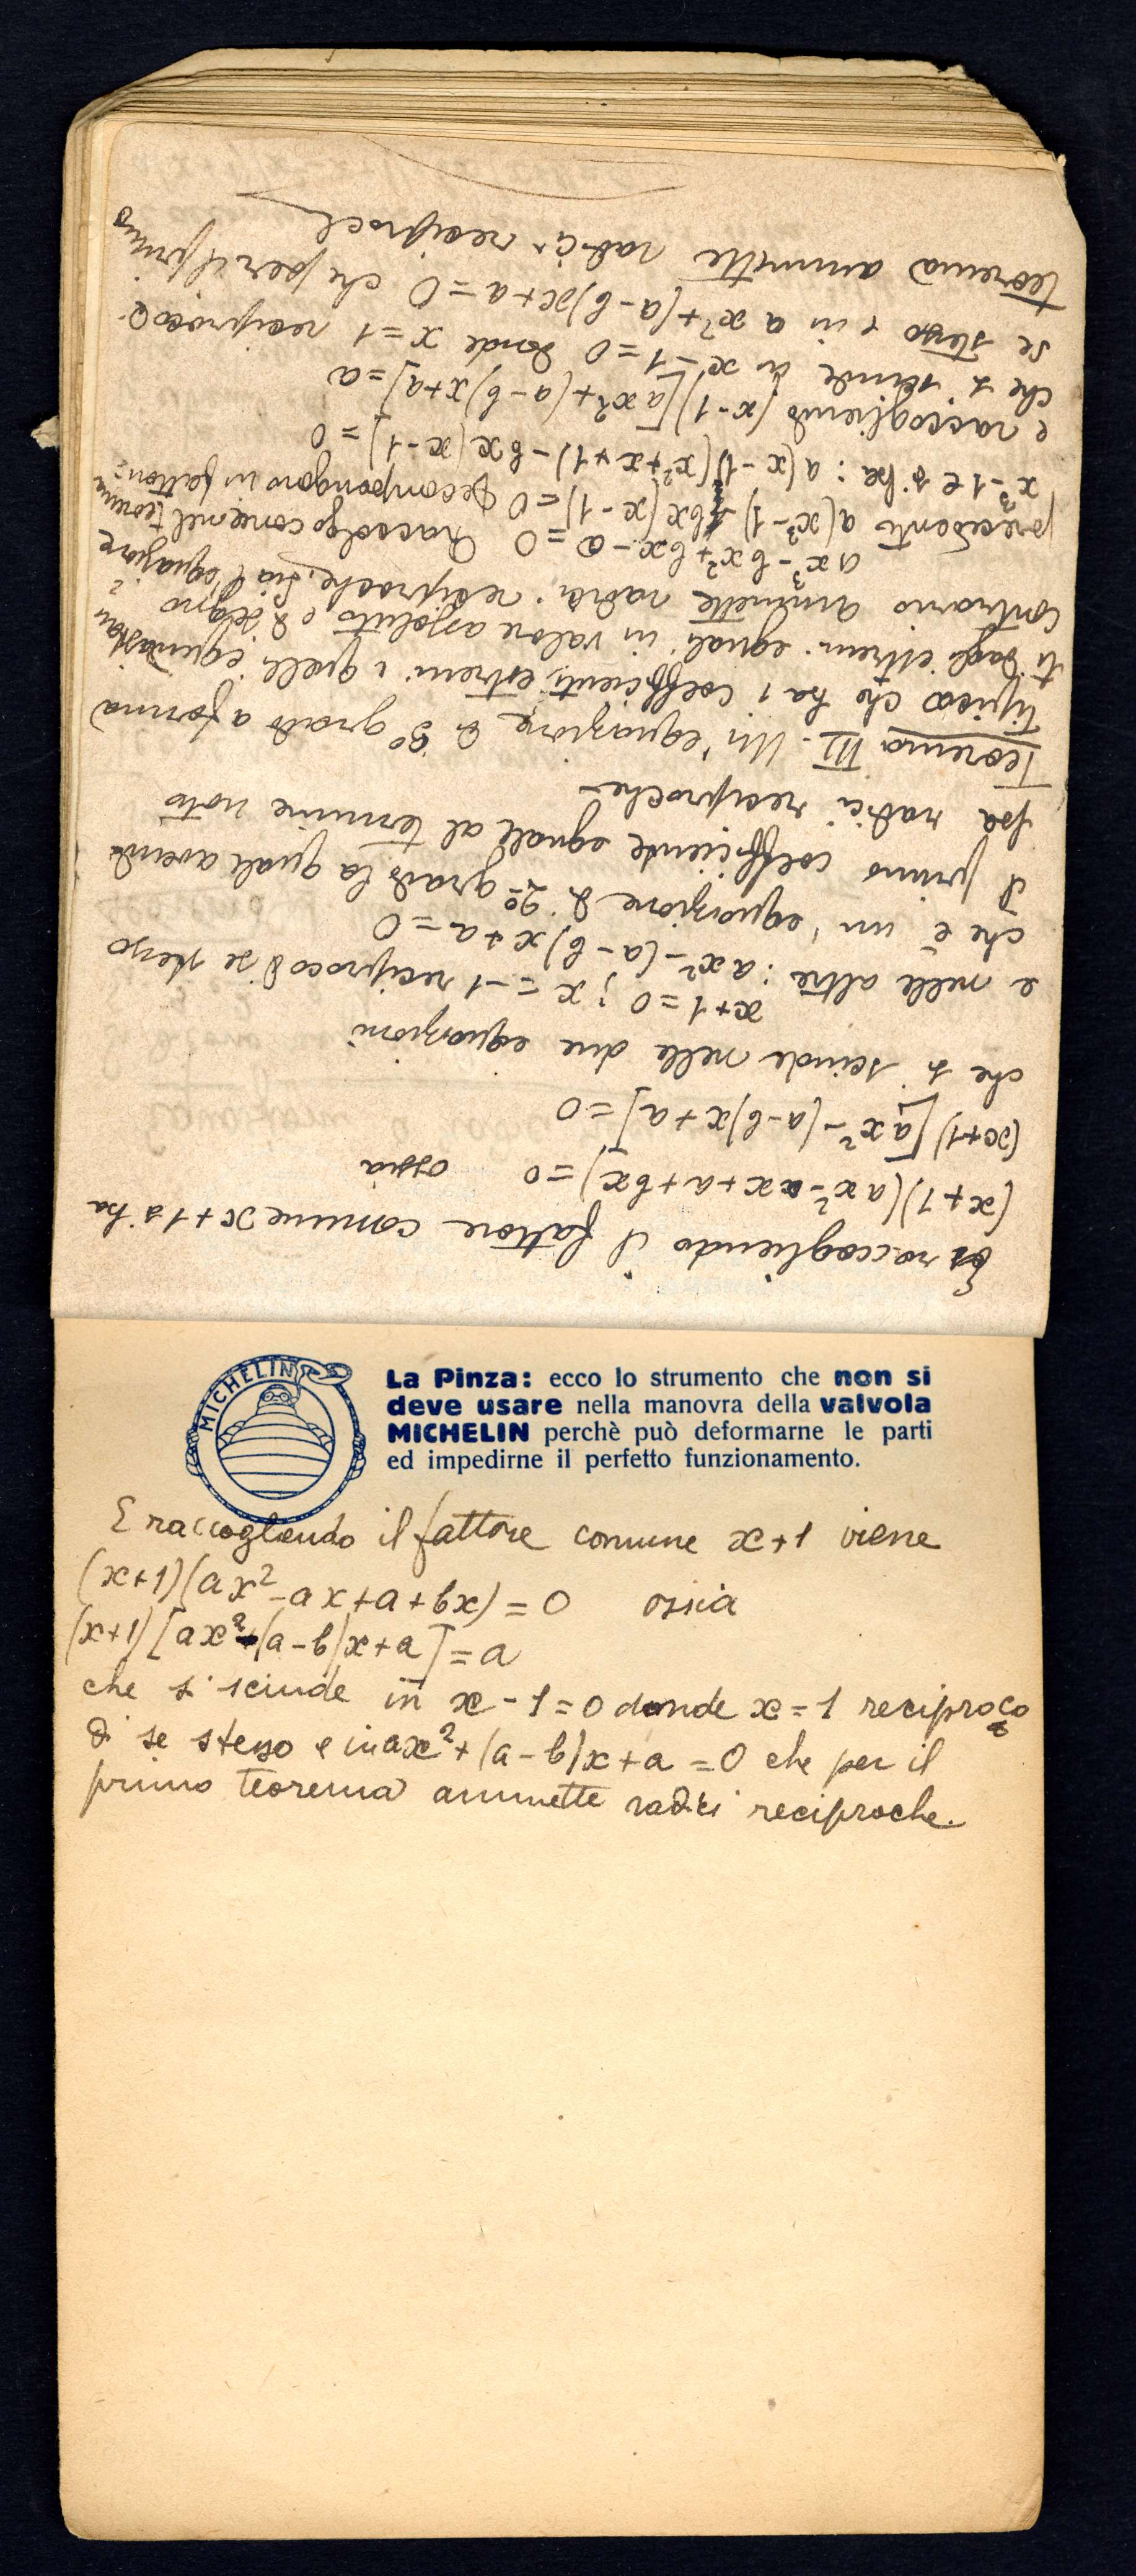 E raccogliendo il fattore comune x+1 si ha
(x+1)(ax²-ax+a+bx)=0 ossia
(x+1)[ax²-(a-b)x+a]=0
che si scinde nelle due equazioni
x+1=0; x=-1 reciproco di se stesso
e nelle altre: ax²-(a-b)x+a=0
che è un'equazione di 2º grado la quale avendo
il primo coefficiente eguale al termine noto
ha radici reciproche-
Teorema III. Un'equazione di 3º grado a forma
tipica che ha i coefficienti estremi e quelli equidistan
ti dagli estremi eguali in valore assoluto e di segno
contrario ammette radici reciproche. Sia l'equazione
ax³-bx²+bx-a=0 Raccolgo come nel teorema
precedente a(x³-1)-bx(x-1)=0 Decompongo in fattori
x³-1 e si ha: a(x-1)(x²+x+1)-bx(x-1)=0
e raccogliendo (x-1)[ax²+(a-b)x+a]=a
che si scinde in x-1=0 donde x=1 reciproco
se stesso e in ax²+(a-b)x+a=0 che per il primo
teorema ammette radici reciproc
MICHELIN
La Pinza: ecco lo strumento che non si
deve usare nella manovra della valvola
MICHELIN perchè può deformarne le parti
ed impedirne il perfetto funzionamento.
E raccogliendo il fattore comune x+1 viene
(x+1)(ax²-ax+a+bx)=0 ossia
(x+1)[ax²-(a-b)x+a]=a
che si scinde in x-1=0 donde x=1 reciproco
di se stesso e in ax²+(a-b)x+a=0 che per il
primo teorema ammette radici reciproche.